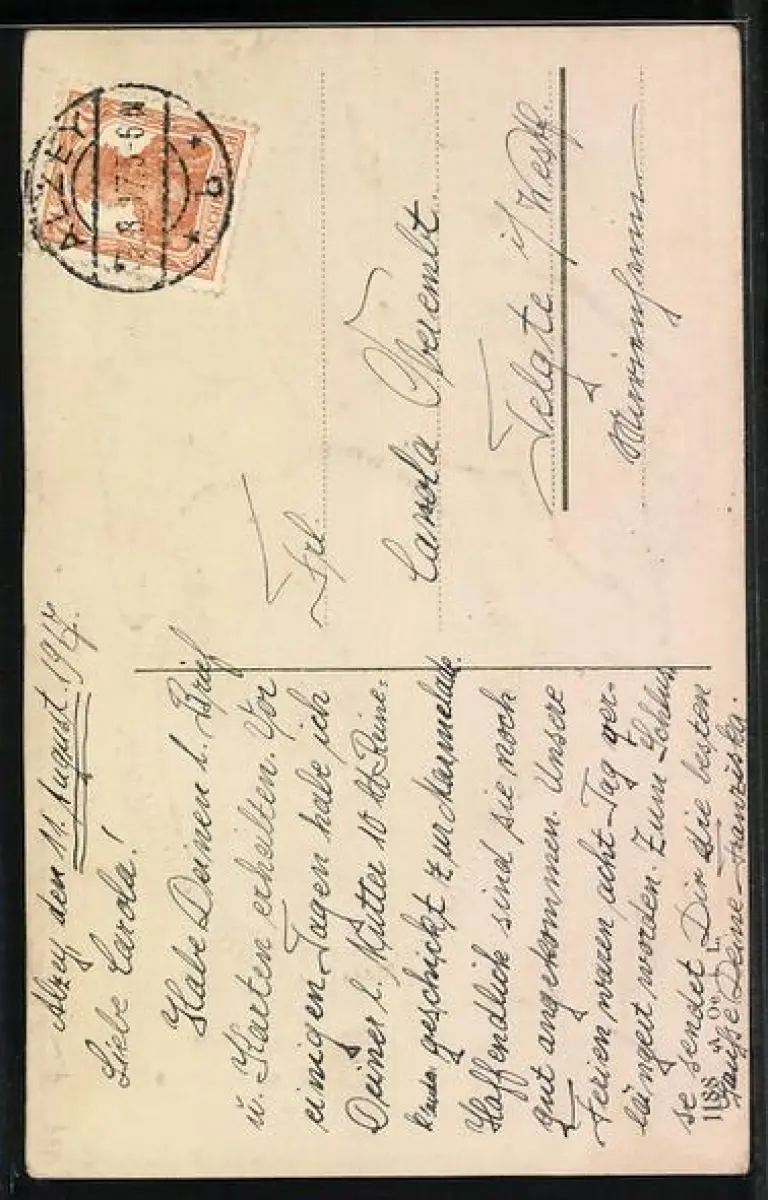 Alzey den 11. August. 1917.
Liebe Carola!
Habe Deinen l. Brief
u. Karten erhalten. Vor
einigen Tagen habe ich
Deiner l. Mutter 10 ℔ Reine-
klauden geschickt zur Marmelade.
Hoffendlich sind sie noch
gut angekommen. Unsere
Ferien waren acht Tag ver-
längert worden. Zum Schlus
se sendet Dir die besten
Grüße Deine Franziska.
1188
ALZEY
8.17.5-6N
* b *
Frl.
Carola Overembt
Telgte i/Westf.
Marienheim